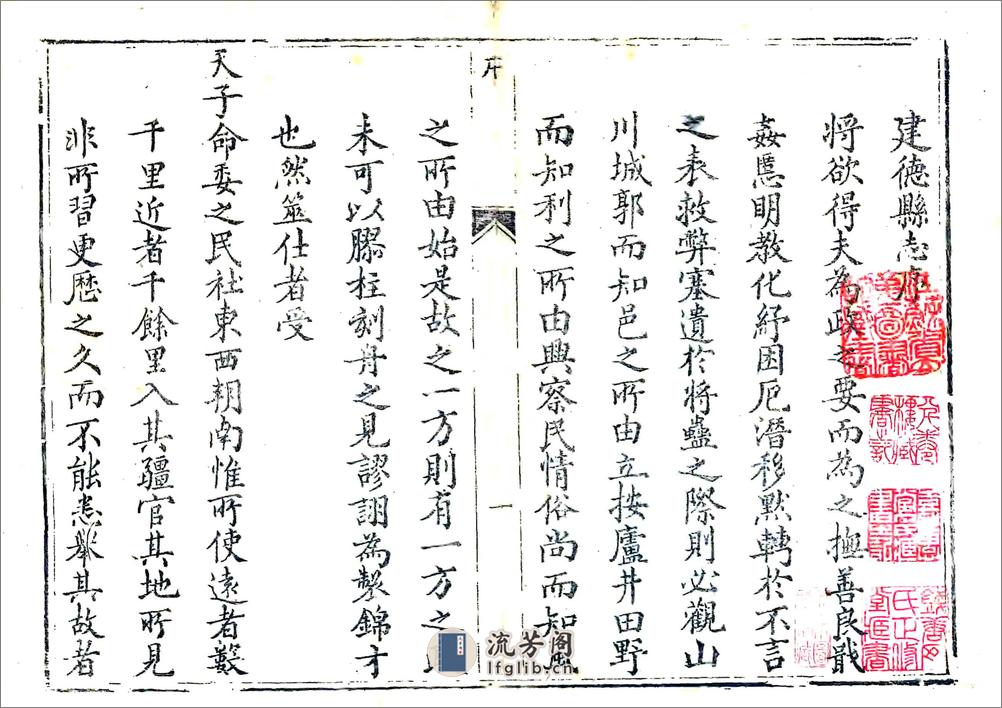 建德縣志序
將欲得夫為政之要而為之撫善良戢
姦慝明教化紓困厄潛移默轉於不言
之表救弊塞遺於將蠱之際則必觀山
川城郭而知邑之所由立按廬井田野
而知利之所由興察民情俗尚而知
序
一
之所由始是故之一方則有一方之
未可以膠柱刻舟之見謬詡為製錦才
也然筮仕者受
天子命委之民社東西朔南惟所使遠者數
千里近者千餘里入其疆官其地所見
非所習更歷之久而不能悉舉其故者
流芳阁
lfglib.cn